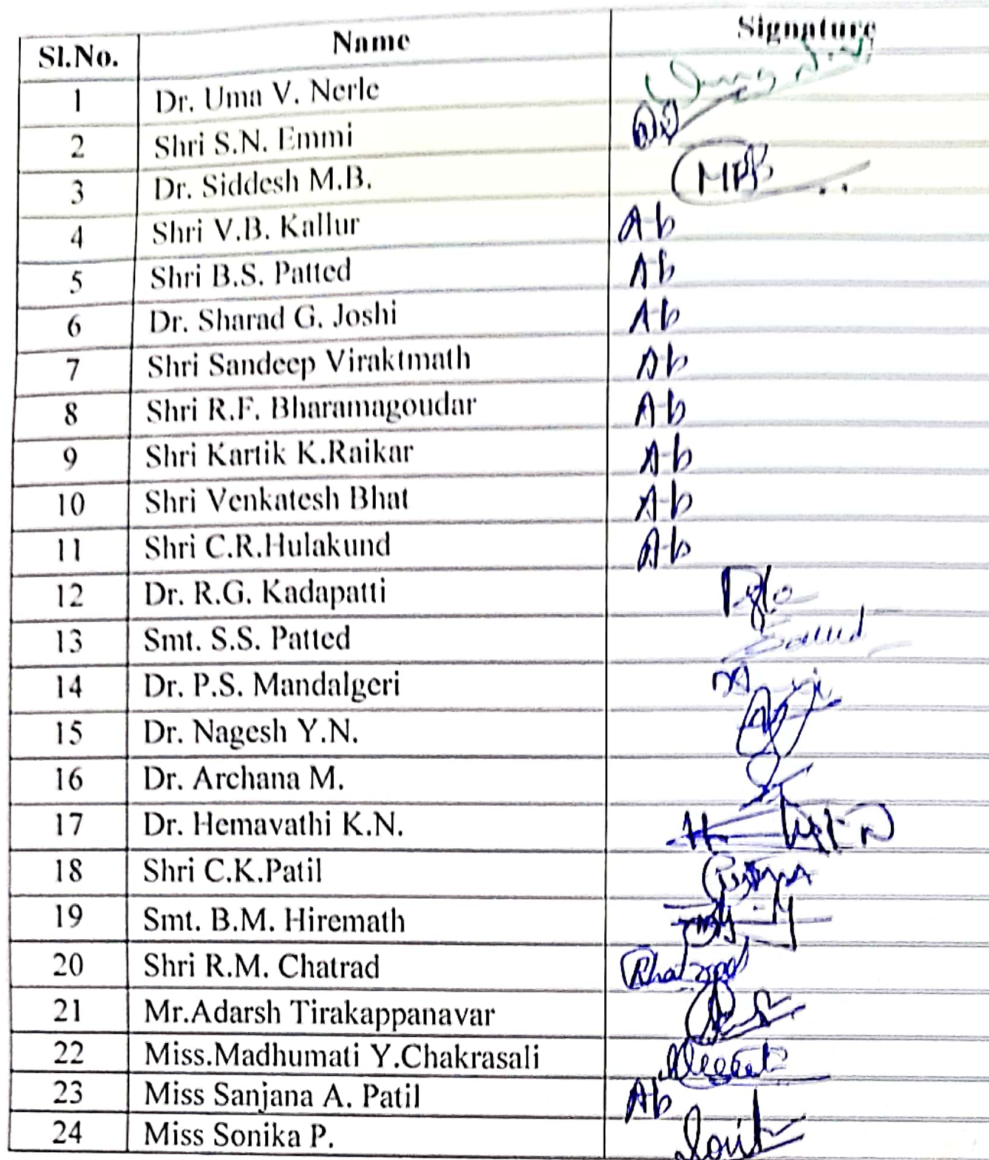 Sl.No. Name Signature
1 Dr. Uma V. Nerle
2 Shri S.N. Emmi
3 Dr. Siddesh M.B.
4 Shri V.B. Kallur Ab
5 Shri B.S. Patted Ab
6 Dr. Sharad G. Joshi Ab
7 Shri Sandeep Viraktmath Ab
8 Shri R.F. Bharamagoudar Ab
9 Shri Kartik K.Raikar Ab
10 Shri Venkatesh Bhat Ab
11 Shri C.R.Hulakund Ab
12 Dr. R.G. Kadapatti
13 Smt. S.S. Patted
14 Dr. P.S. Mandalgeri
15 Dr. Nagesh Y.N.
16 Dr. Archana M.
17 Dr. Hemavathi K.N.
18 Shri C.K.Patil
19 Smt. B.M. Hiremath
20 Shri R.M. Chatrad
21 Mr.Adarsh Tirakappanavar
22 Miss.Madhumati Y.Chakrasali
23 Miss Sanjana A. Patil Ab
24 Miss Sonika P.